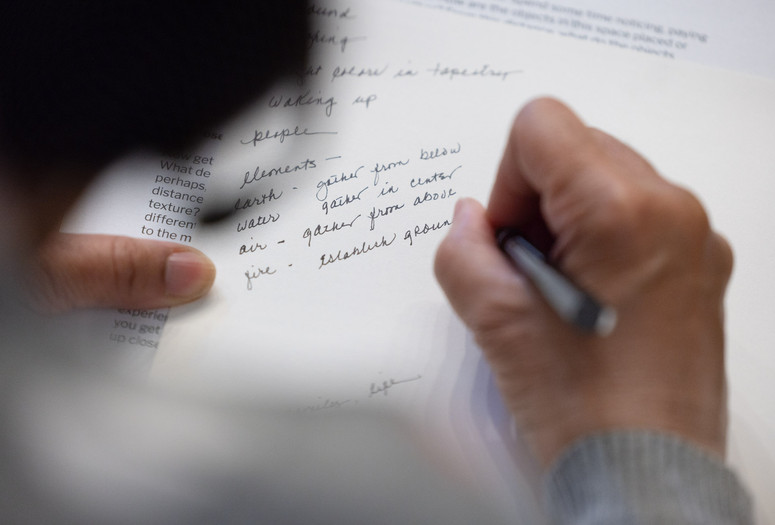 spend some time noticing, paying
are the objects in this space placed or
colors in tapestry
waking up
people
elements —
earth - gather from below
water gather in center
air - gather from above
fire - establish groun
get
What de
perhaps,
distance
texture?
differen
to the m
experie
you get
up close
life